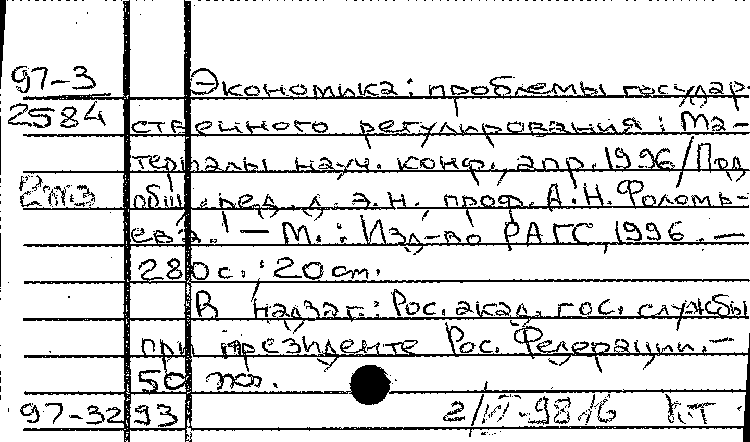 97-3 Экономика: проблемы государ-
2584 ственного регулирования: Ма-
териалы науч. конф., апр. 1996/Под
2тз общ. ред. д.э.н., проф. А.Н. Фоломь-
ева. — М.: Изд-во РАГС, 1996. —
280с.: 20см.
В надзаг.: Рос. акад. гос. службы
при президенте Рос. Федерации. —
50
97-3293 2/VI-98 16 КТ